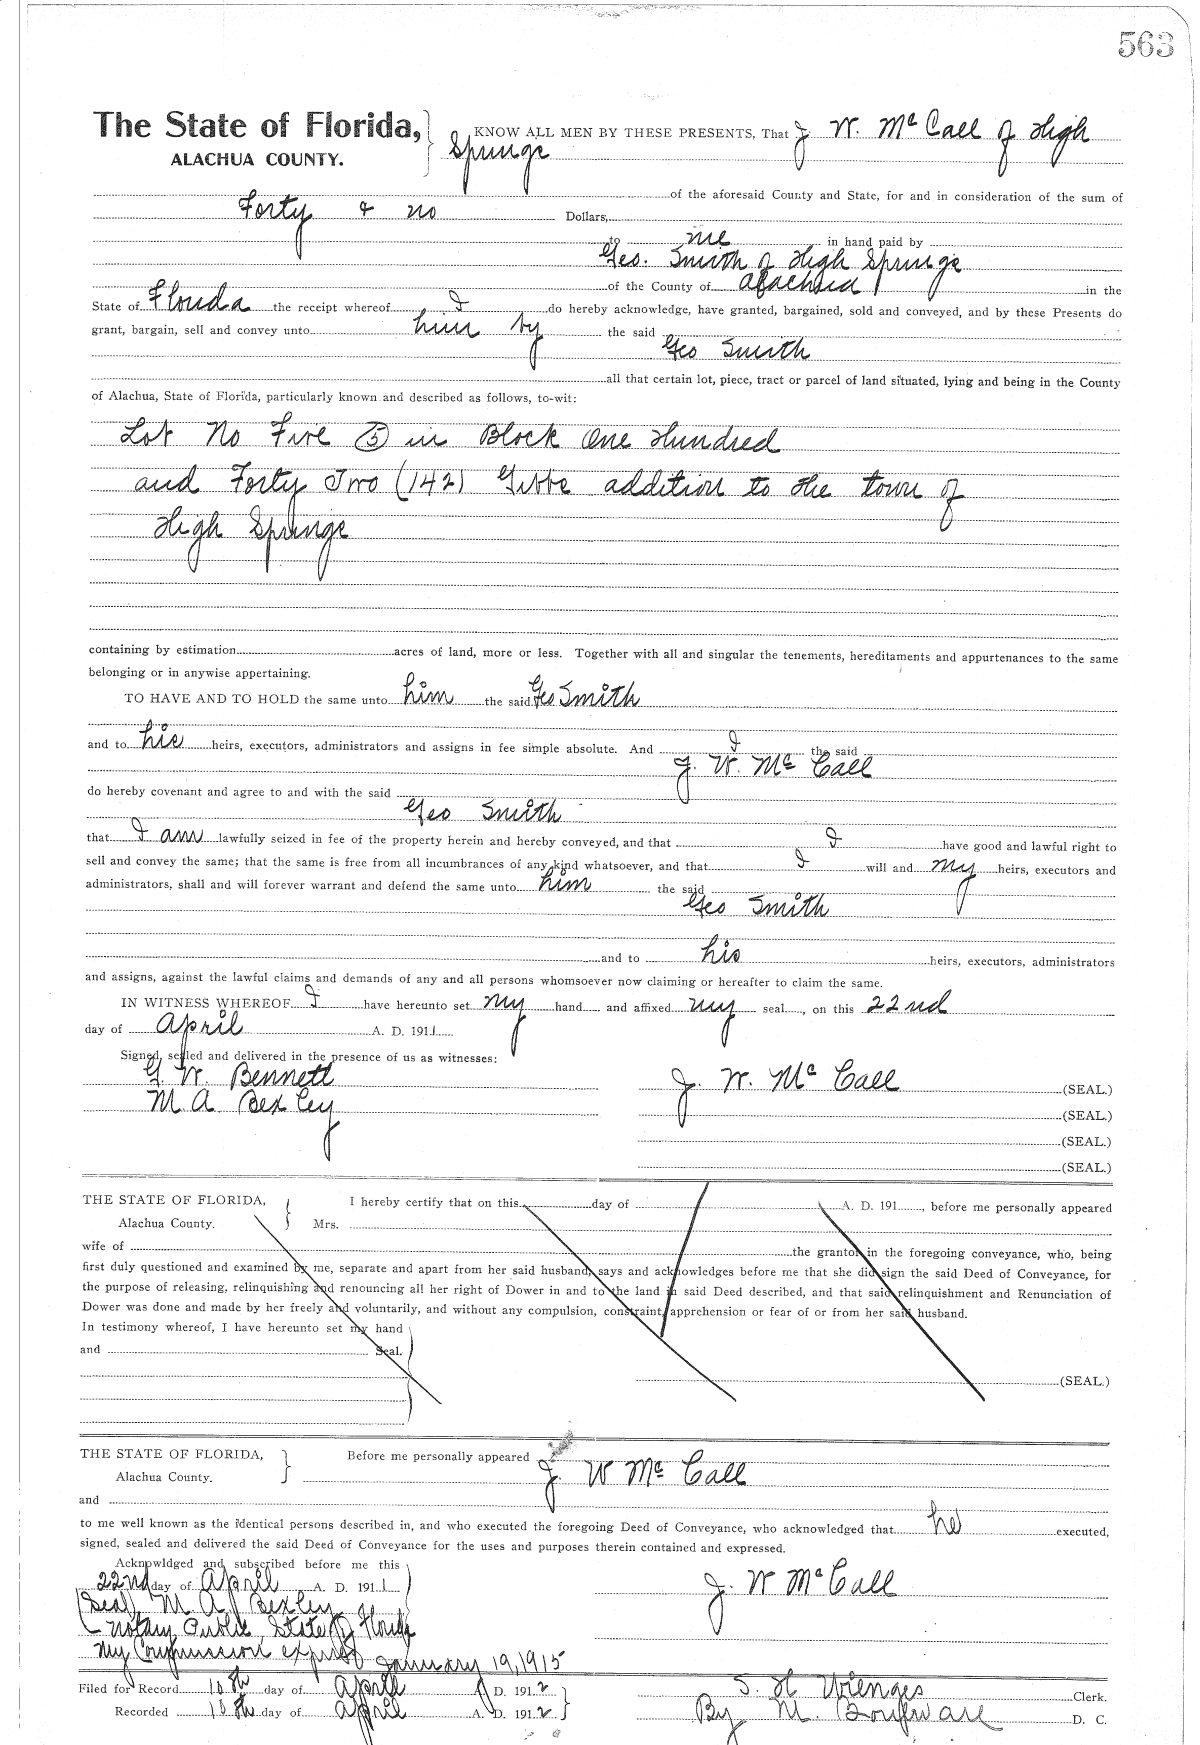 563
The State of Florida,
ALACHUA COUNTY.
KNOW ALL MEN BY THESE PRESENTS, That J. W. McCall of High
Springs
of the aforesaid County and State, for and in consideration of the sum of
Forty & no Dollars,
to me in hand paid by
Geo. Smith of High Springs
of the County of Alachua in the
State of Florida the receipt whereof I do hereby acknowledge, have granted, bargained, sold and conveyed, and by these Presents do
grant, bargain, sell and convey unto him by the said
Geo Smith
all that certain lot, piece, tract or parcel of land situated, lying and being in the County
of Alachua, State of Florida, particularly known and described as follows, to-wit:
Lot No Five (5) in Block One Hundred
and Forty Two (142) Gibbs addition to the town of
High Springs
containing by estimation acres of land, more or less. Together with all and singular the tenements, hereditaments and appurtenances to the same
belonging or in anywise appertaining.
TO HAVE AND TO HOLD the same unto him the said Geo Smith
and to his heirs, executors, administrators and assigns in fee simple absolute. And I the said
J. W. McCall
do hereby covenant and agree to and with the said
Geo Smith
that I am lawfully seized in fee of the property herein and hereby conveyed, and that I have good and lawful right to
sell and convey the same; that the same is free from all incumbrances of any kind whatsoever, and that I will and my heirs, executors and
administrators, shall and will forever warrant and defend the same unto him the said
Geo Smith
and to his heirs, executors, administrators
and assigns, against the lawful claims and demands of any and all persons whomsoever now claiming or hereafter to claim the same.
IN WITNESS WHEREOF I have hereunto set my hand and affixed my seal, on this 22nd
day of April A. D. 1911
Signed, sealed and delivered in the presence of us as witnesses:
G. W. Bennett J. W. McCall (SEAL.)
M A Bexley (SEAL.)
(SEAL.)
(SEAL.)
THE STATE OF FLORIDA, I hereby certify that on this day of A. D. 191 , before me personally appeared
Alachua County. Mrs.
wife of the grantor in the foregoing conveyance, who, being
first duly questioned and examined by me, separate and apart from her said husband, says and acknowledges before me that she did sign the said Deed of Conveyance, for
the purpose of releasing, relinquishing and renouncing all her right of Dower in and to the land in said Deed described, and that said relinquishment and Renunciation of
Dower was done and made by her freely and voluntarily, and without any compulsion, constraint, apprehension or fear of or from her said husband.
In testimony whereof, I have hereunto set my hand
and Seal.
(SEAL.)
THE STATE OF FLORIDA, Before me personally appeared J. W McCall
Alachua County.
and
to me well known as the identical persons described in, and who executed the foregoing Deed of Conveyance, who acknowledged that he executed,
signed, sealed and delivered the said Deed of Conveyance for the uses and purposes therein contained and expressed.
Acknpwldged and subscribed before me this
22nd day of April A. D. 1911 J. W McCall
(Seal) M A Bexley
Notary Public, State of Florida
My Commission expires January 19, 1915
Filed for Record 10th day of April A. D. 1912 S. H. Wienges Clerk.
Recorded 10th day of April A. D. 1912 By M. Boulware D. C.